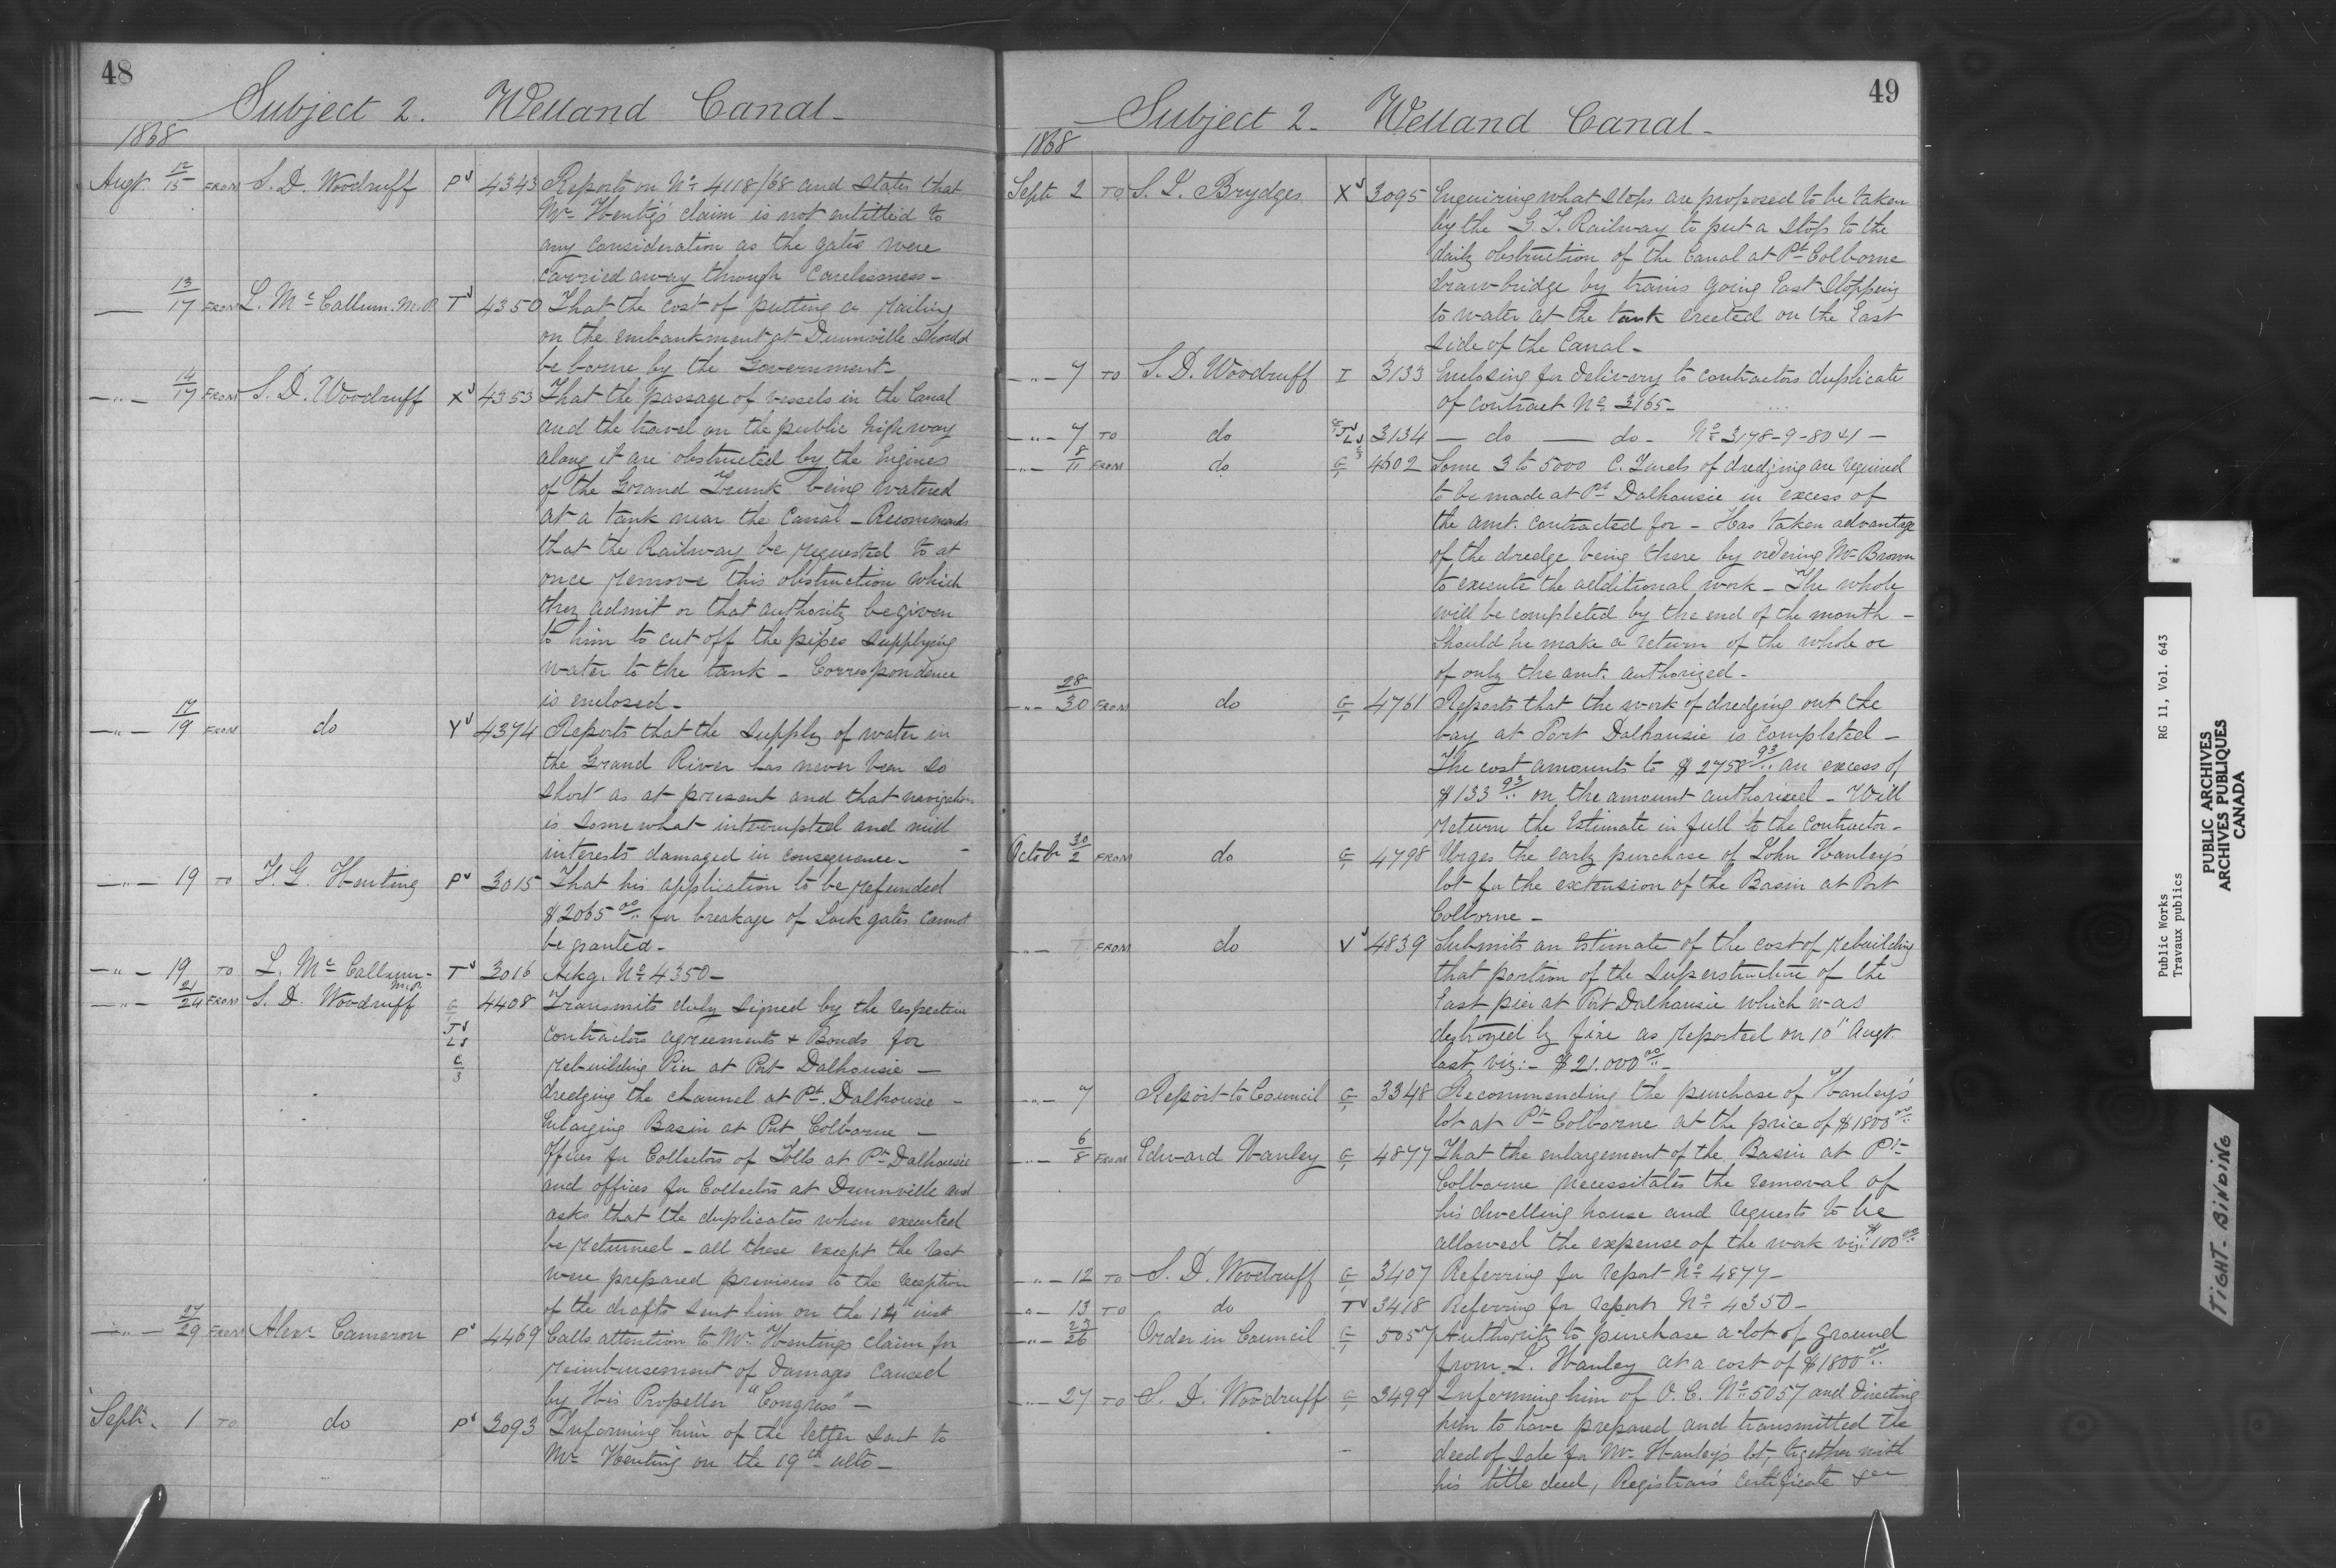 48
Subject 2. Welland Canal -
1868
Augt. 12/15 FROM S. D. Woodruff P 4343 Reports on No. 4118/68 and states that
Mr. Henty's claim is not entitled to
any consideration as the gates were
carried away through carelessness -
— 13/17 FROM L. McCallum. M.P. T 4350 That the cost of putting a railing
on the embankment at Dunnville should
be borne by the Government -
— " — 14/17 FROM S. D. Woodruff X 4353 That the passage of vessels in the Canal
and the travel on the public highway
along it are obstructed by the Engines
of the Grand Trunk being watered
at a tank near the Canal - Recommends
that the Railway be requested to at
once remove this obstruction which
they admit or that authority be given
to him to cut off the pipes supplying
water to the tank - Correspondence
is enclosed -
— " — 17/19 FROM do Y 4374 Reports that the supply of water in
the Grand River has never been so
short as at present and that navigation
is somewhat interrupted and mill
interests damaged in consequence -
— " — 19 TO H. G. Henting P 3015 That his application to be refunded
$2065 00/.. for breakage of Lock gates cannot
be granted -
— " — 19 TO L. McCallum - M.P. T 3016 Ackg. No. 4350 -
— " — 21/24 FROM S. D. Woodruff 4408 Transmits duly signed by the respective
contractors agreements + Bonds for
rebuilding Pier at Port Dalhousie -
dredging the channel at Pt. Dalhousie -
Enlarging Basin at Port Colborne -
Offices for Collectors of Tolls at Pt. Dalhousie
and offices for Collectors at Dunnville and
asks that the duplicates when executed
be returned - all these except the last
were prepared previous to the reception
of the drafts sent him on the 14th inst
— " — 27/29 FROM Alexr Cameron P 4469 Calls attention to Mr. Hentings claim for
reimbursement of damages caused
by His Propeller "Congress" -
Septr. 1 TO do P 3093 Informing him of the letter sent to
Mr. Henting on the 19th ulto -
49
Subject 2 - Welland Canal -
1868
Septr 2 TO Brydges X 3095 Enquiring what steps are proposed to be taken
by the G. T. Railway to put a stop to the
daily obstruction of the Canal at Pt. Colborne
draw-bridge by trains going East stopping
to water at the tank erected on the East
side of the Canal -
— " — 7 TO S. D. Woodruff I 3133 Enclosing for delivery to contractors duplicate
of contract No. 3165 -
— " — 7 TO do 3134 — do — do - No. 3178-9-80 & 1 —
— " — 8/11 FROM do 4602 Some 3 to 5000 C. Yards of dredging are required
to be made at Pt. Dalhousie in excess of
the amt. contracted for - Has taken advantage
of the dredge being there by ordering Mr. Brown
to execute the additional work - The whole
will be completed by the end of the month -
Should he make a return of the whole or
of only the amt. authorized -
— " — 28/30 FROM do 4761 Reports that the work of dredging out the
bay at Port Dalhousie is completed -
The cost amounts to $2758 93/.. an excess of
$133 93/.. on the amount authorised - Will
return the Estimate in full to the contractor -
Octobr 30/2 FROM do 4798 Urges the early purchase of John Hanley's
lot for the extension of the Basin at Port
Colborne -
— " — FROM do V 4839 Submits an estimate of the cost of rebuilding
that portion of the superstructure of the
East pier at Port Dalhousie which was
destroyed by fire as reported on 10" Augt.
last, viz: - $21.000 00/.. -
— " — 7 Report to Council 3348 Recommending the purchase of Hanley's
lot at Pt. Colborne at the price of $1800 00/..
— " — 6/8 FROM Edward Hanley 4877 That the enlargement of the Basin at Pt.
Colborne necessitates the removal of
his dwelling house and requests to be
allowed the expense of the work viz: $100 00/..
— " — 12 TO S. D. Woodruff 3407 Referring for report No. 4877 -
— " — 13 TO do T 3418 Referring for report No. 4350 -
— " — 23/26 Order in Council 5057 Authority to purchase a lot of ground
from Hanley at a cost of $1800 00/..
— " — 27 TO S. D. Woodruff 3499 Informing him of O. C. No. 5057 and directing
him to have prepared and transmitted the
deed of sale for Mr. Hanley's lot, together with
his title deed, Registrar's Certificate &c
Public Works RG 11, Vol. 643
Travaux publics
PUBLIC ARCHIVES
ARCHIVES PUBLIQUES
CANADA
TIGHT BINDING